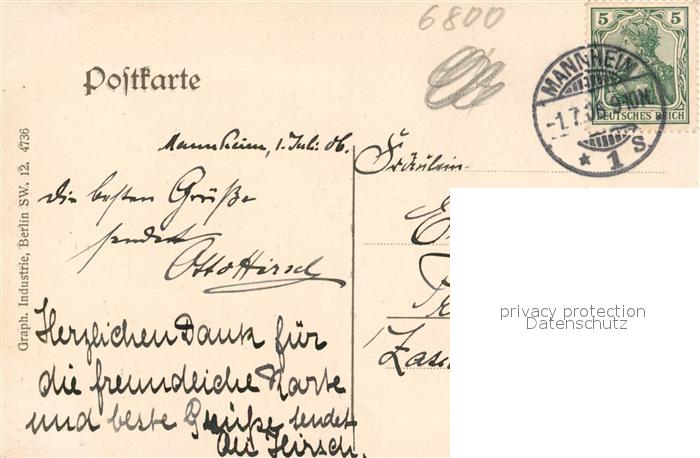 6800
5 5
DEUTSCHES REICH
MANNHEIM
-1.7.06. 9-10N
* 1 S
Postkarte
Mannheim, 1. Juli. 06.
die besten Grüße
sendet
Otto Hirsch
Herzlichen Dank für
die freundliche Karte
und beste Grüße sendet
Hirsch.
Fräulein
Graph. Industrie, Berlin SW. 12. 4736
privacy protection
Datenschutz